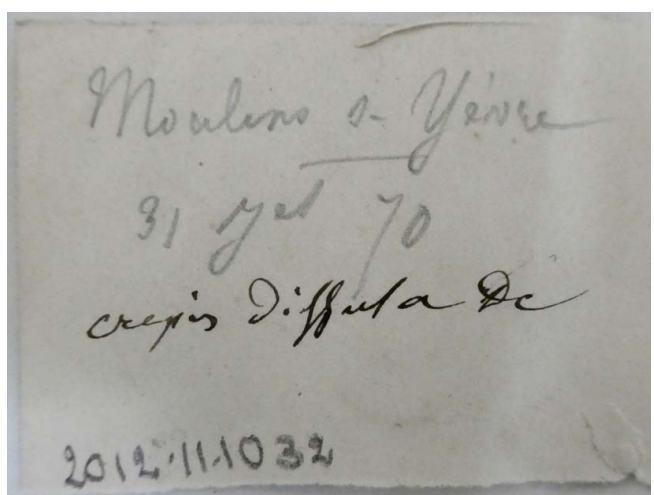 Moulins s. Yèvre
31 Jet 70
crepis diffusa Dc
2012.11.1032